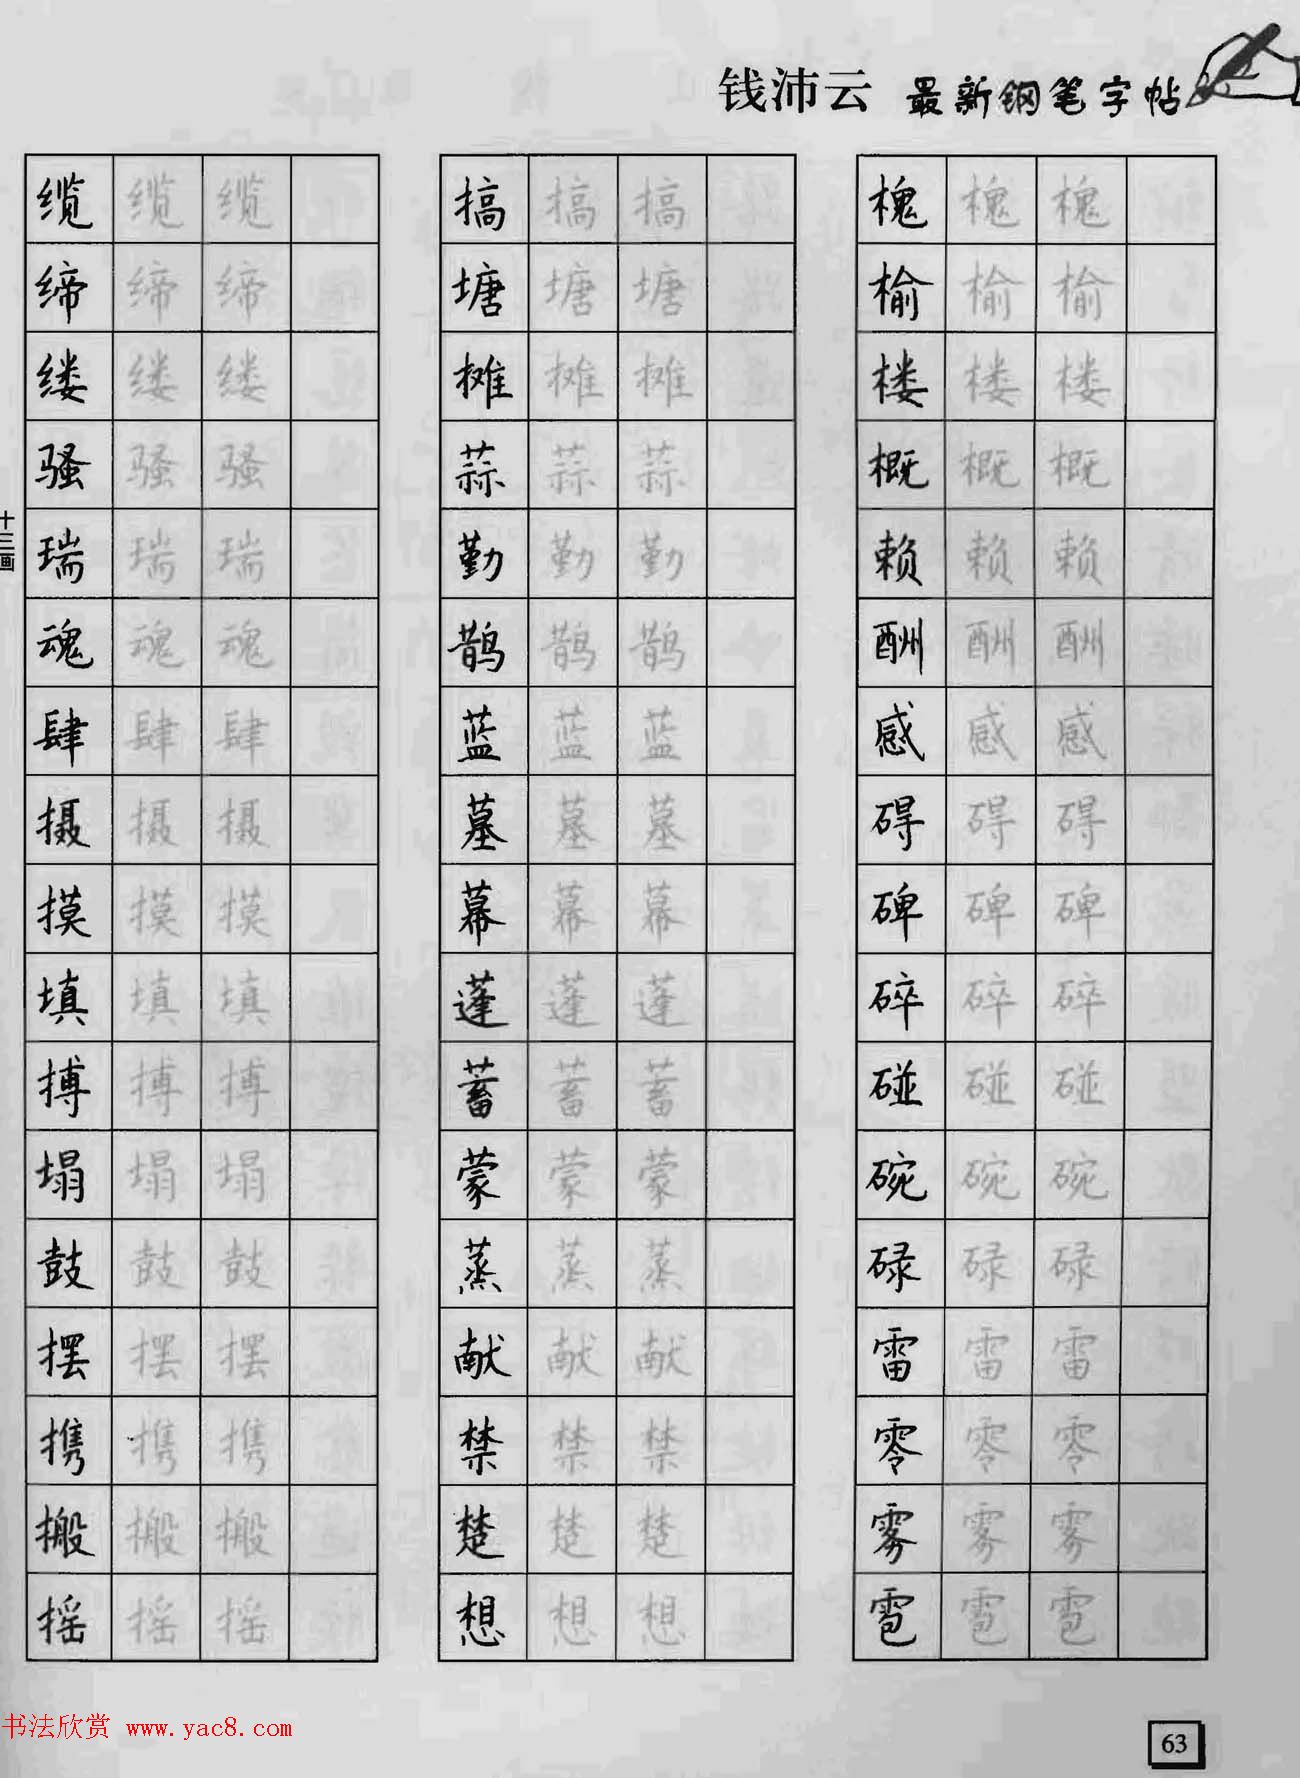 钱沛云 最新钢笔字帖
十三画
缆 缆 缆 搞 搞 搞 槐 槐 槐
缔 缔 缔 塘 塘 塘 榆 榆 榆
缕 缕 缕 摊 摊 摊 楼 楼 楼
骚 骚 骚 蒜 蒜 蒜 概 概 概
瑞 瑞 瑞 勤 勤 勤 赖 赖 赖
魂 魂 魂 鹊 鹊 鹊 酬 酬 酬
肆 肆 肆 蓝 蓝 蓝 感 感 感
摄 摄 摄 墓 墓 墓 碍 碍 碍
摸 摸 摸 幕 幕 幕 碑 碑 碑
填 填 填 蓬 蓬 蓬 碎 碎 碎
搏 搏 搏 蓄 蓄 蓄 碰 碰 碰
塌 塌 塌 蒙 蒙 蒙 碗 碗 碗
鼓 鼓 鼓 蒸 蒸 蒸 碌 碌 碌
摆 摆 摆 献 献 献 雷 雷 雷
携 携 携 禁 禁 禁 零 零 零
搬 搬 搬 楚 楚 楚 雾 雾 雾
摇 摇 摇 想 想 想 雹 雹 雹
书法欣赏 www.yac8.com
63